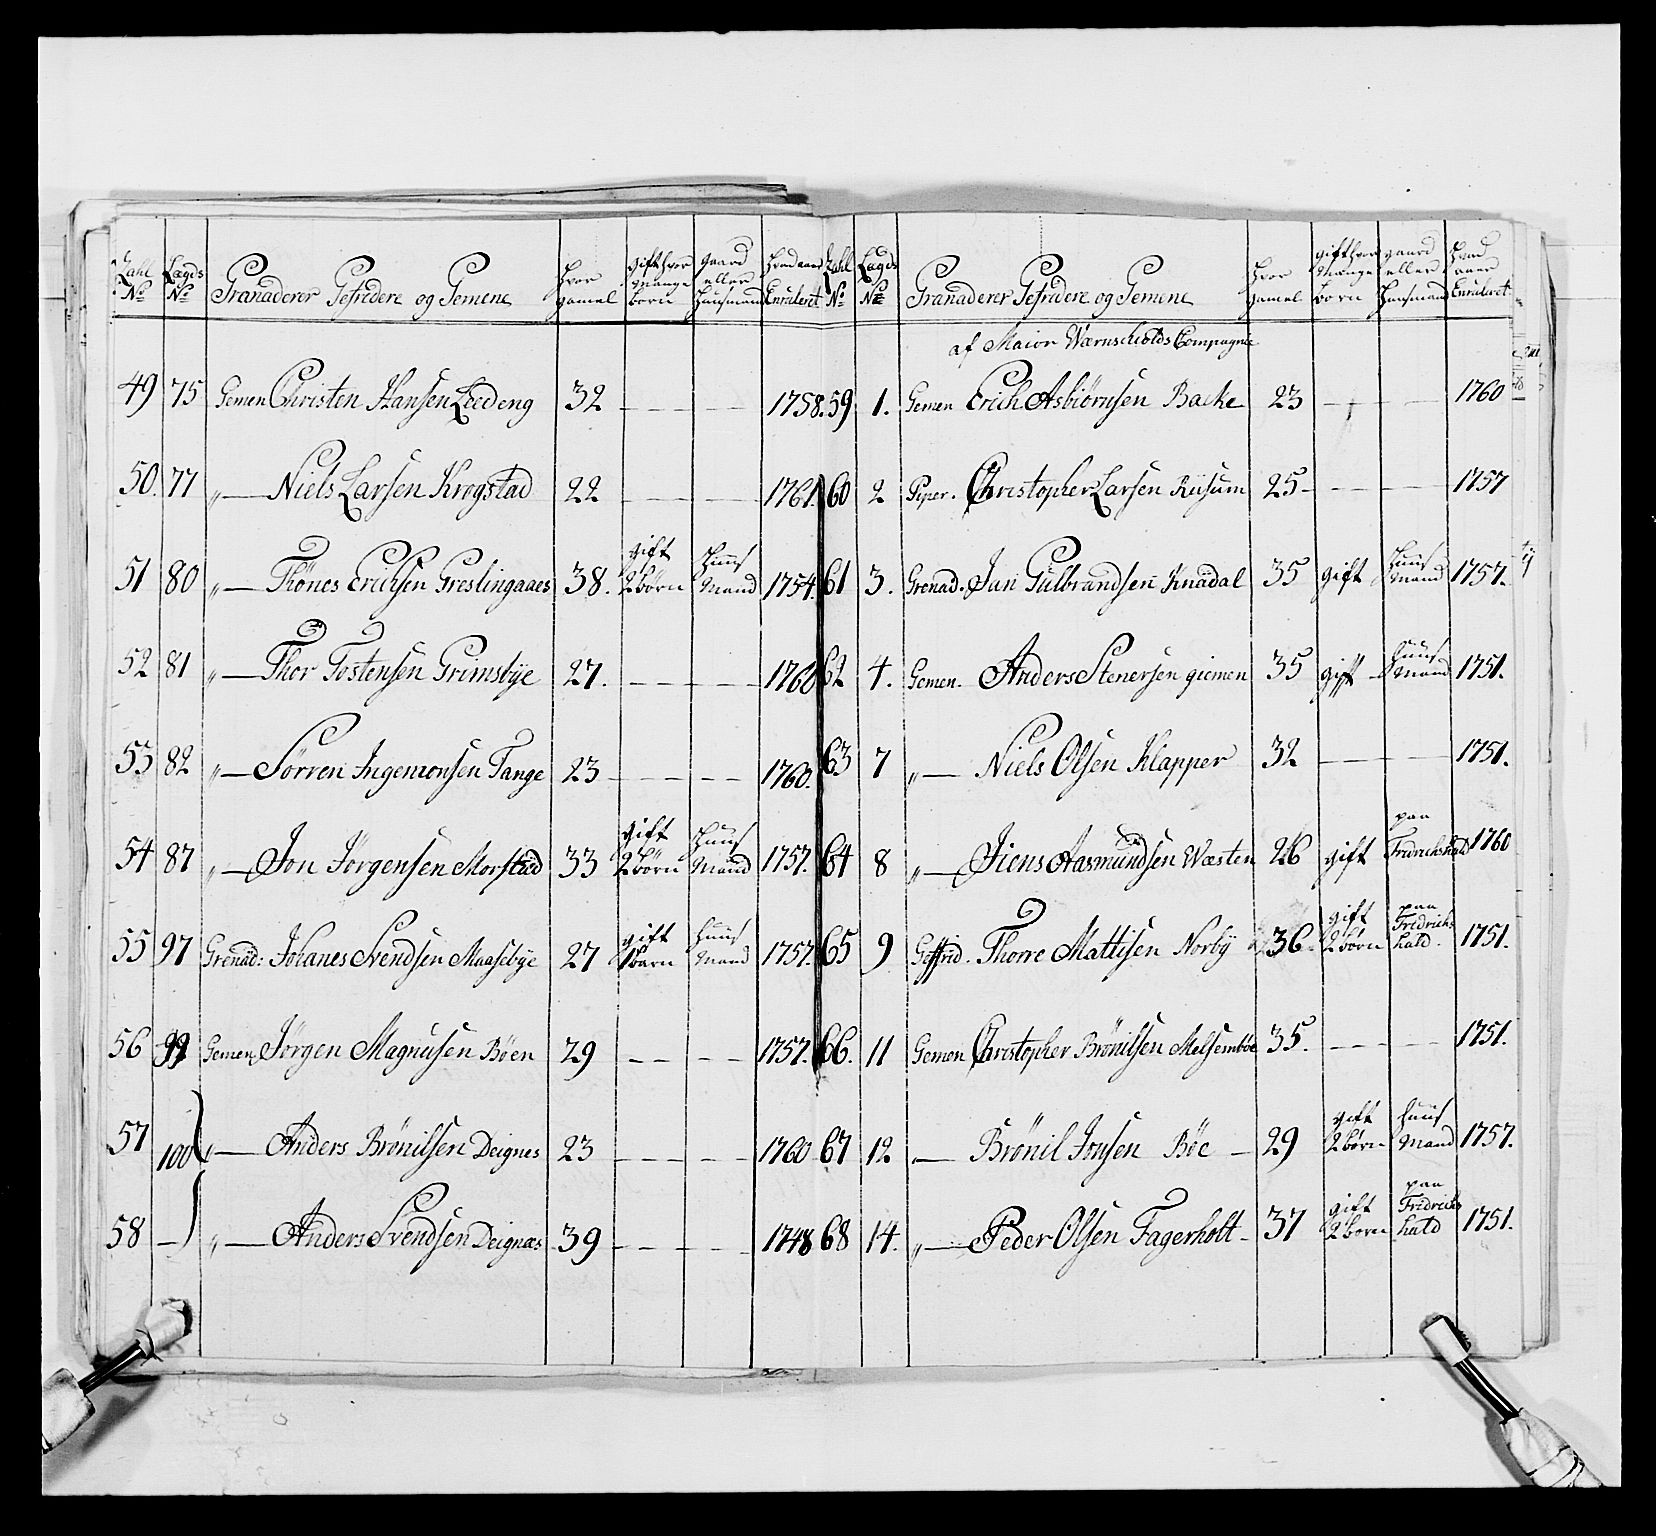 Zahl No Lægds No Granaderer Gefridere og Gemene Hvor gamel gift hvor mange born gaard eller Huusmand Hvad aar Enruleret
49 75 Gemen Christen Hansen Leedeng 32 — — 1758.
50. 77 „— Niels Larsen Krogstad 22 — — 1761.
51 80 „— Thönes Erichsen Greslingaaes 38. gift 2 börn Huus Mand 1754.
52 81 „— Thor Tostensen Grimsbÿe 27. — — 1760
53 82 „— Sörren Ingemonsen Tange 23 — — 1760.
54 87 „— Jon Jörgensen Morstad 33 gift 2 börn Huus Mand 1757.
55 97 Grenad: Johanes Svendsen Maasebÿe 27 gift 1 barn Huus Mand 1757.
56 99 Gemen Jörgen Magnusen Böen 29 — — 1757.
57 100 „— Anders Brönilsen Deignes 23 — — 1760
58 — „— Anders Svendsen Deignæs 39 — — 1748
Zahl No Lægds No Granaderer Gefridere og Gemene Hvor gamel gift hvor mange börn gaard eller Huusmand Hvad aar Enruleret
af Maior Warnscholds Compagnie
59 1. Gemen Erich Asbiörnsen Backe 23 — — 1760
60 2 Piper. Christopher Larsen Riisum 25 — — 1757
61 3. Grenad. Jan Gulbrandsen Knadal 35 gift Huus Mand 1757.
62 4. Gemen. Anders Stenersen giemen 35 gift Huus Mand 1751.
63 7 „— Niels Olsen Klapper 32 — — 1751.
64 8 „— Jiens Aasmundsen Wæsten 26 gift paa Fridrichshald 1760
65 9 Geffrid. Thorre Mattisen Norbÿ 36 gift 2 börn paa Fridrichs hald. 1751.
66. 11 Gemen Christopher Brönilsen Melsemböe 35. — — 1751.
67 12 — Brönil Jonsen Böe 29 gift 2 börn Huus Mand 1757.
68 14. „— Peder Olsen Fagerholt 37 gift 2 börn paa Fridrichs hald 1751.